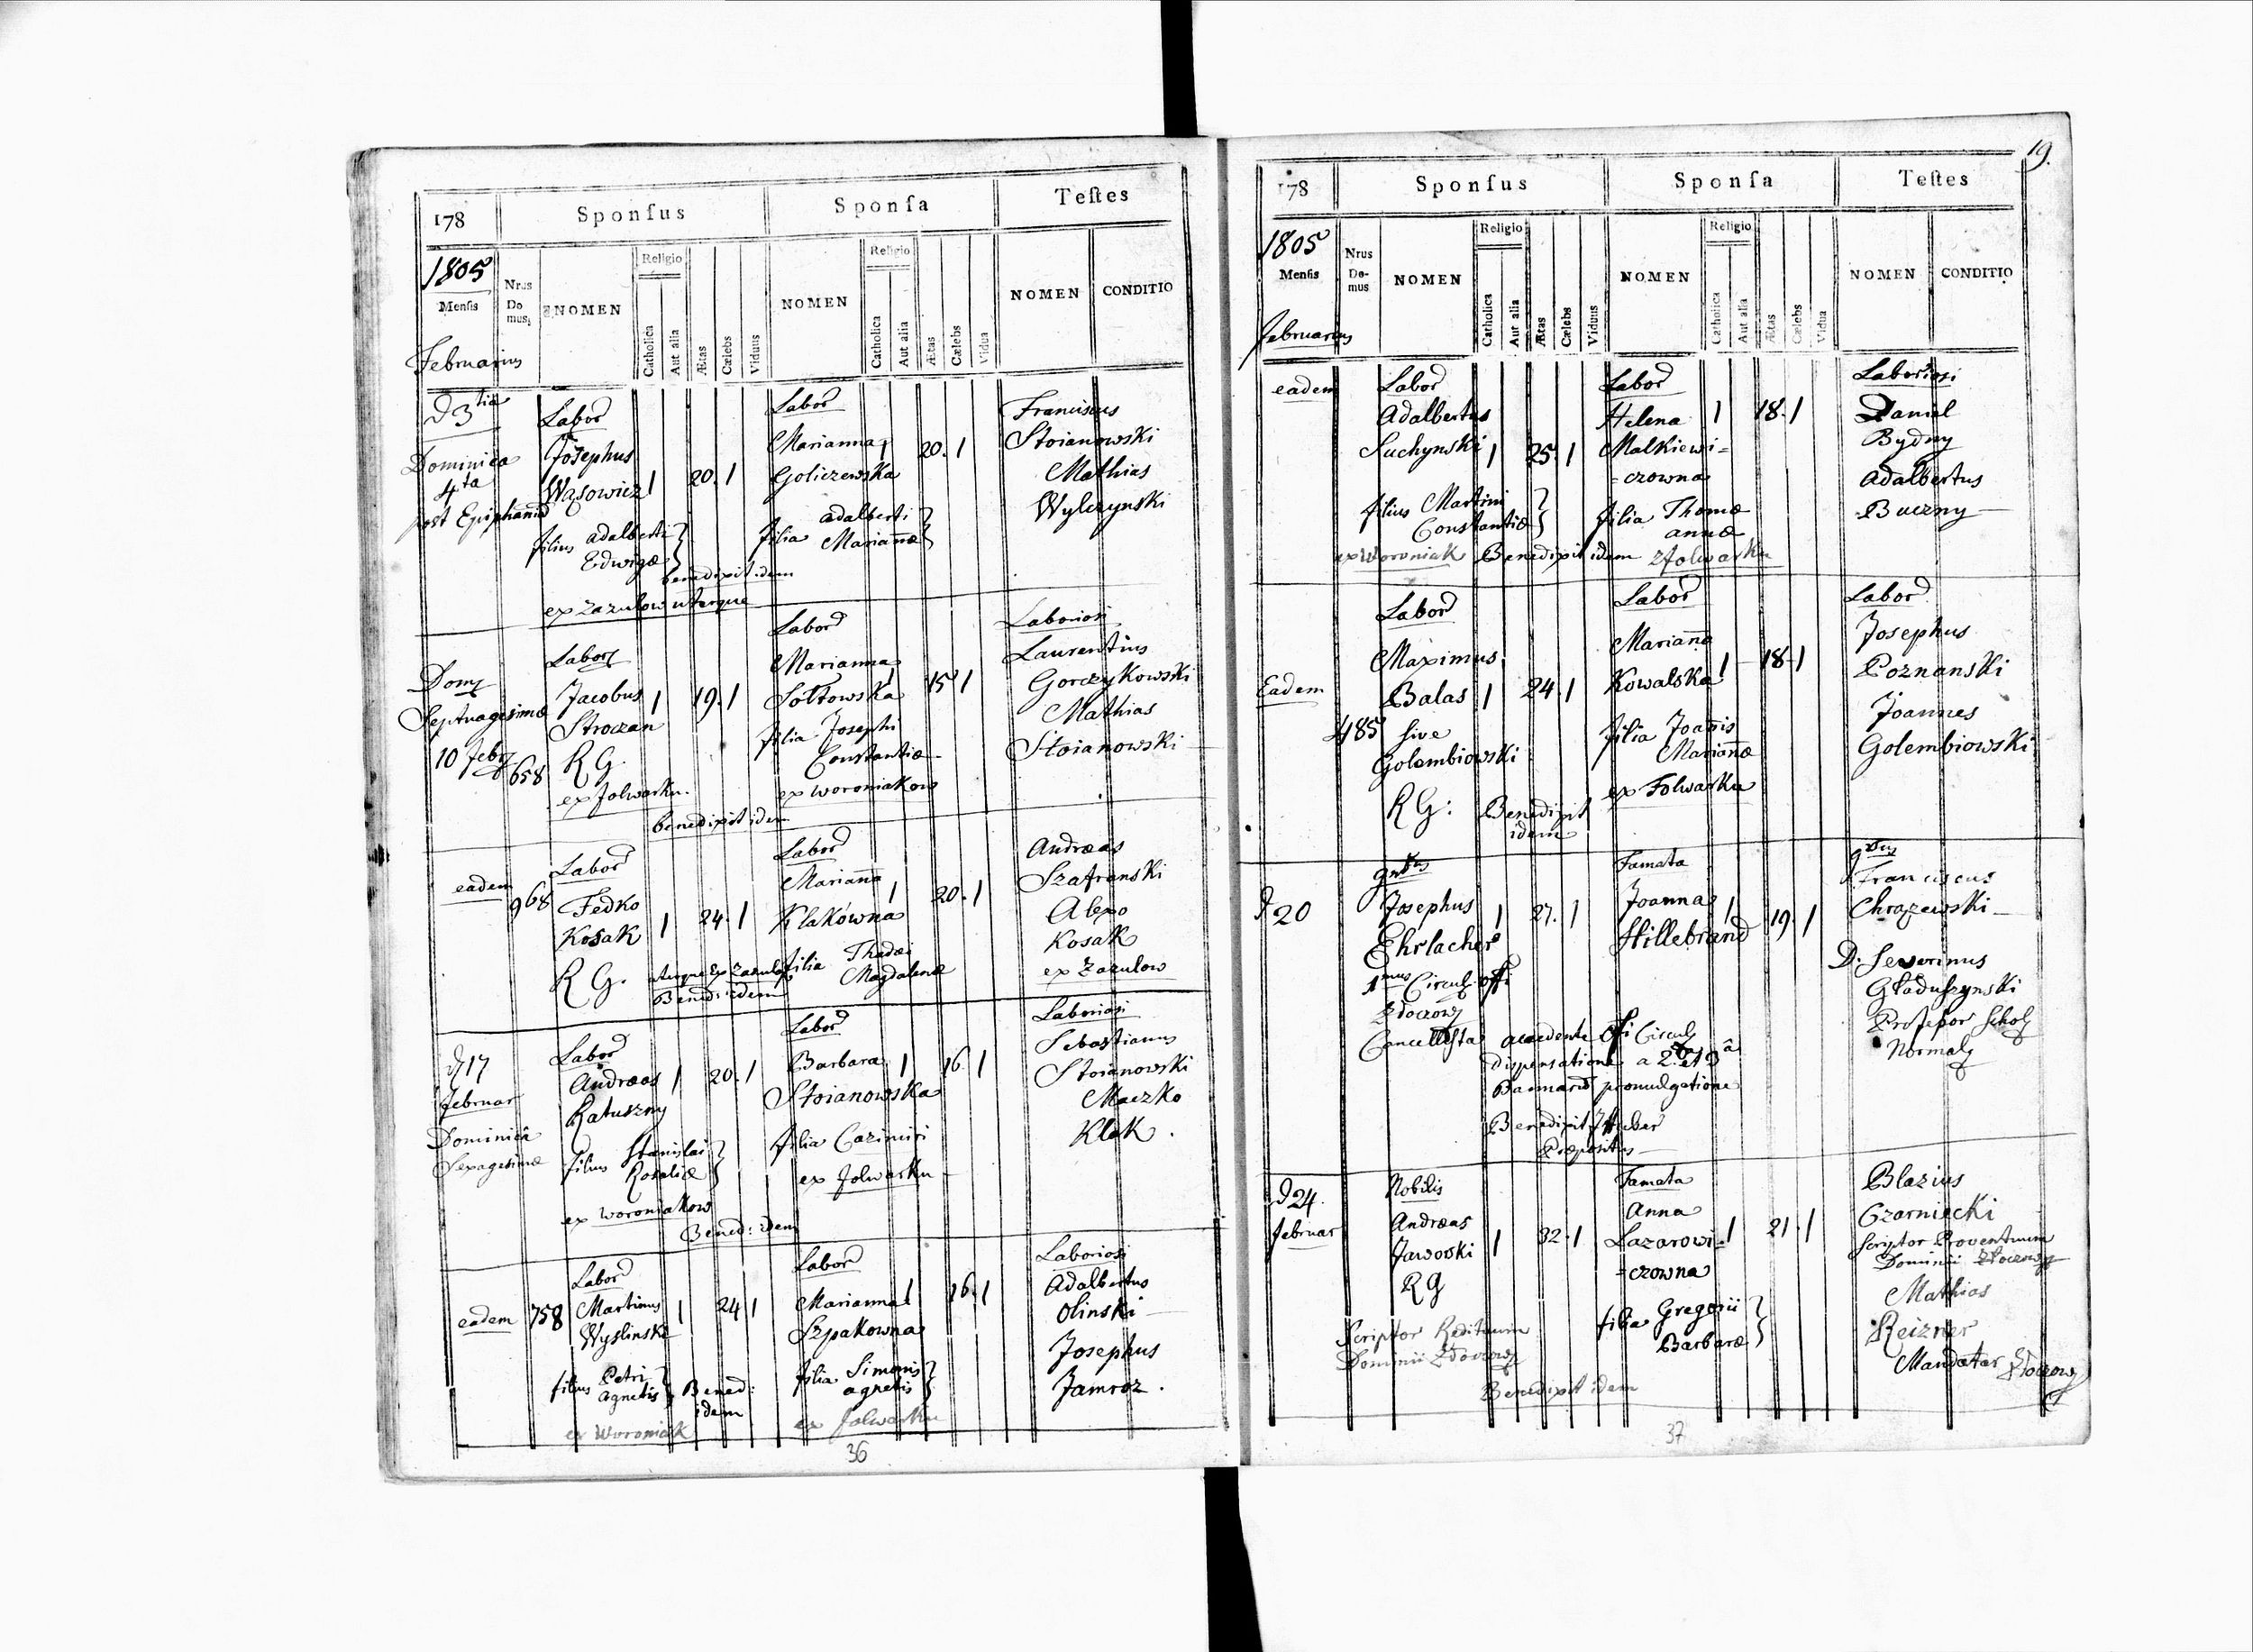 178
Sponsus
Sponsa
Testes
1805
Mensis
Februarius
Nrus Domus
NOMEN
Religio
Catholica
Aut alia
Ætas
Cœlebs
Viduus
NOMEN
Religio
Catholica
Aut alia
Ætas
Cœlebs
Vidua
NOMEN
CONDITIO
d 3tia
Dominica
4ta
post Epiphaniā
Labor
Josephus
Wąsowicz 1 20. 1
filius Adalberti
Edwigæ
benedixit idem
ex Zazulow uterque
Labor
Marianna 1 20. 1
Goliczewska
filia Adalberti
Mariañæ
Franciscus
Stoianowski
Mathias
Wylczynski
Dom
Septuagesimæ
10 Febr
658
Labor
Jacobus 1 19. 1
Stroczan
R G.
ex folwarku.
benedixit idem
Labor
Marianna 1 15 1
Sołtowska
filia Josephi
Constantiæ
ex woroniakow
Laboriosi
Laurentius
Gorczykowski
Mathias
Stoianowski
eadem
968
Labor
Fedko
Kosak 1 24. 1
R G.
uterque ex Zazulow
Bened: idem
Labor
Mariaña 1 20. 1
Klakówna
filia Thadæi
Magdalenæ
Andræas
Szafranski
Alexo
Kosak
ex Zazulow
d 17
Februar
Dominicâ
Sexagesimæ
Labor
Andræas 1 20. 1
Ratuszny
filius Stanislai
Rosaliæ
ex woroniakow
Bened: idem
Labor
Barbara 1 16. 1
Stoianowska
filia Cazimiri
ex folwarku
Laboriosi
Sebastianus
Stoianowski
Maczko
Klak.
eadem
758
Labor
Martinus 1 24 1
Wyslinski
filius Petri
Agnetis
Bened:
idem
ex Woroniak
Labor
Marianna 1 16. 1
Szpakowna
filia Simonis
Agnetis
ex folwarku
Laboriosi
Adalbertus
Olinski
Josephus
Jamroz.
36
19.
178
Sponsus
Sponsa
Testes
1805
Mensis
Februarius
Nrus Domus
NOMEN
Religio
Catholica
Aut alia
Ætas
Cœlebs
Viduus
NOMEN
Religio
Catholica
Aut alia
Ætas
Cœlebs
Vidua
NOMEN
CONDITIO
eadem
Labor
Adalbertus
Suchynski 1 25. 1
filius Martini
Constantiæ
ex Woroniak Benedixit idem
Labor
Helena 1 18. 1
Malkiewi=
=czowna
filia Thomæ
Annæ
z folwarku
Laboriosi
Daniel
Bydny
Adalbertus
Buczny
Eadem
485
Labor
Maximus
Balas 1 24. 1
sive
Golembiowski
R G: Benedixit
idem
Labor
Mariaña
Kowalska 1 18. 1
filia Joañis
Mariañæ
ex Folwarku
Labor
Josephus
Poznanski
Joannes
Golembiowski
d 20
Josephus 1 27. 1
Ehrlacher
1mus Circul: Offi
Złoczow
Cancellista accedente Offi Circul
dispensatione a 2da et 3â
Bannarū promulgatione
Benedixit J Huber
Præpositus
Famata
Joanna 1 19. 1
Hillebrand
Franciscus
Chrązewski
D. Severinus
Gładuszynski
Professor Schol
Normal
d 24.
Februar
Nobilis
Andræas
Jaworski 1 32. 1
R G
Scriptor Redituum
Dominii Złoczow
Benedixit idem
Famata
Anna
Lazarowi= 1 21. 1
=czowna
filia Gregorii
Barbaræ
Blazius
Czarniecki
Scriptor Proventuum
Dominii Złoczow
Mathias
Reizner
Mandatar Złoczow
37